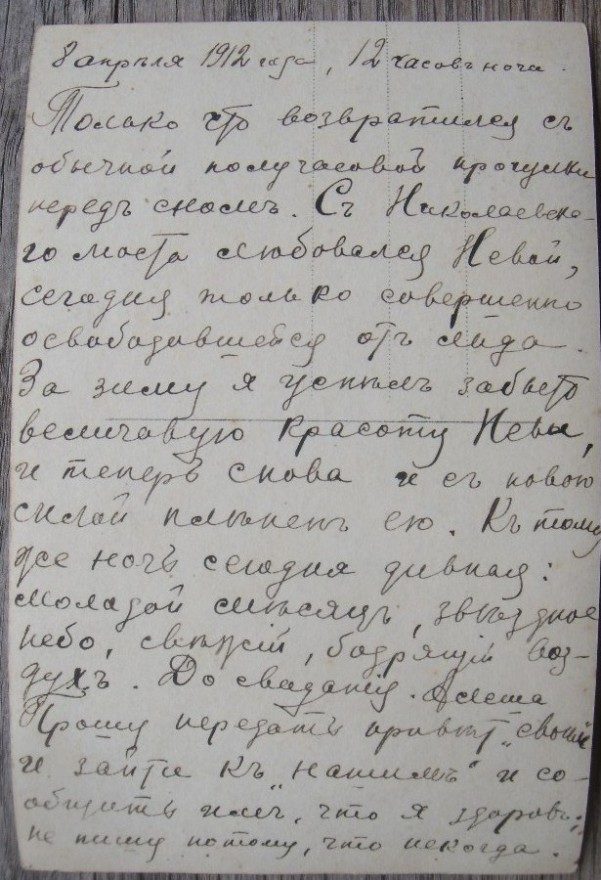 8 апрѣля 1912 года, 12 часовъ ночи.
Только что возвратился съ
обычной получасовой прогулки
передъ сномъ. Съ Николаевска-
го моста любовался Невой,
сегодня только совершенно
освободившейся отъ льда.
За зиму я успѣлъ забыть
величавую красоту Невы,
и теперь снова и съ новою
силой плѣненъ ею. Къ тому
же ночь сегодня дивная:
молодой мѣсяцъ, звѣздное
небо, свѣжій, бодрящій воз-
духъ. До свиданія. Алеша
Прошу передать привѣт „своимъ
и зайти къ „нашимъ" и со-
общить имъ, что я здоровъ;
не пишу потому, что некогда.